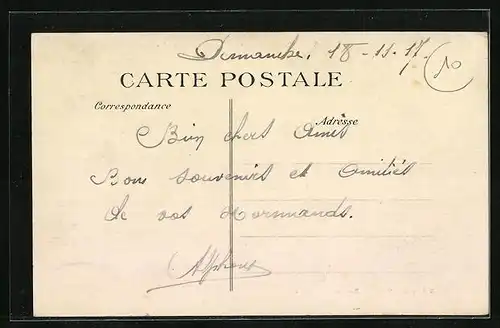 Dimanche, 18-11-17.
10
CARTE POSTALE
Correspondance
Adresse
Bien chers Amis
Bons souvenirs et amitiés
de vos Normands.
Alphonse